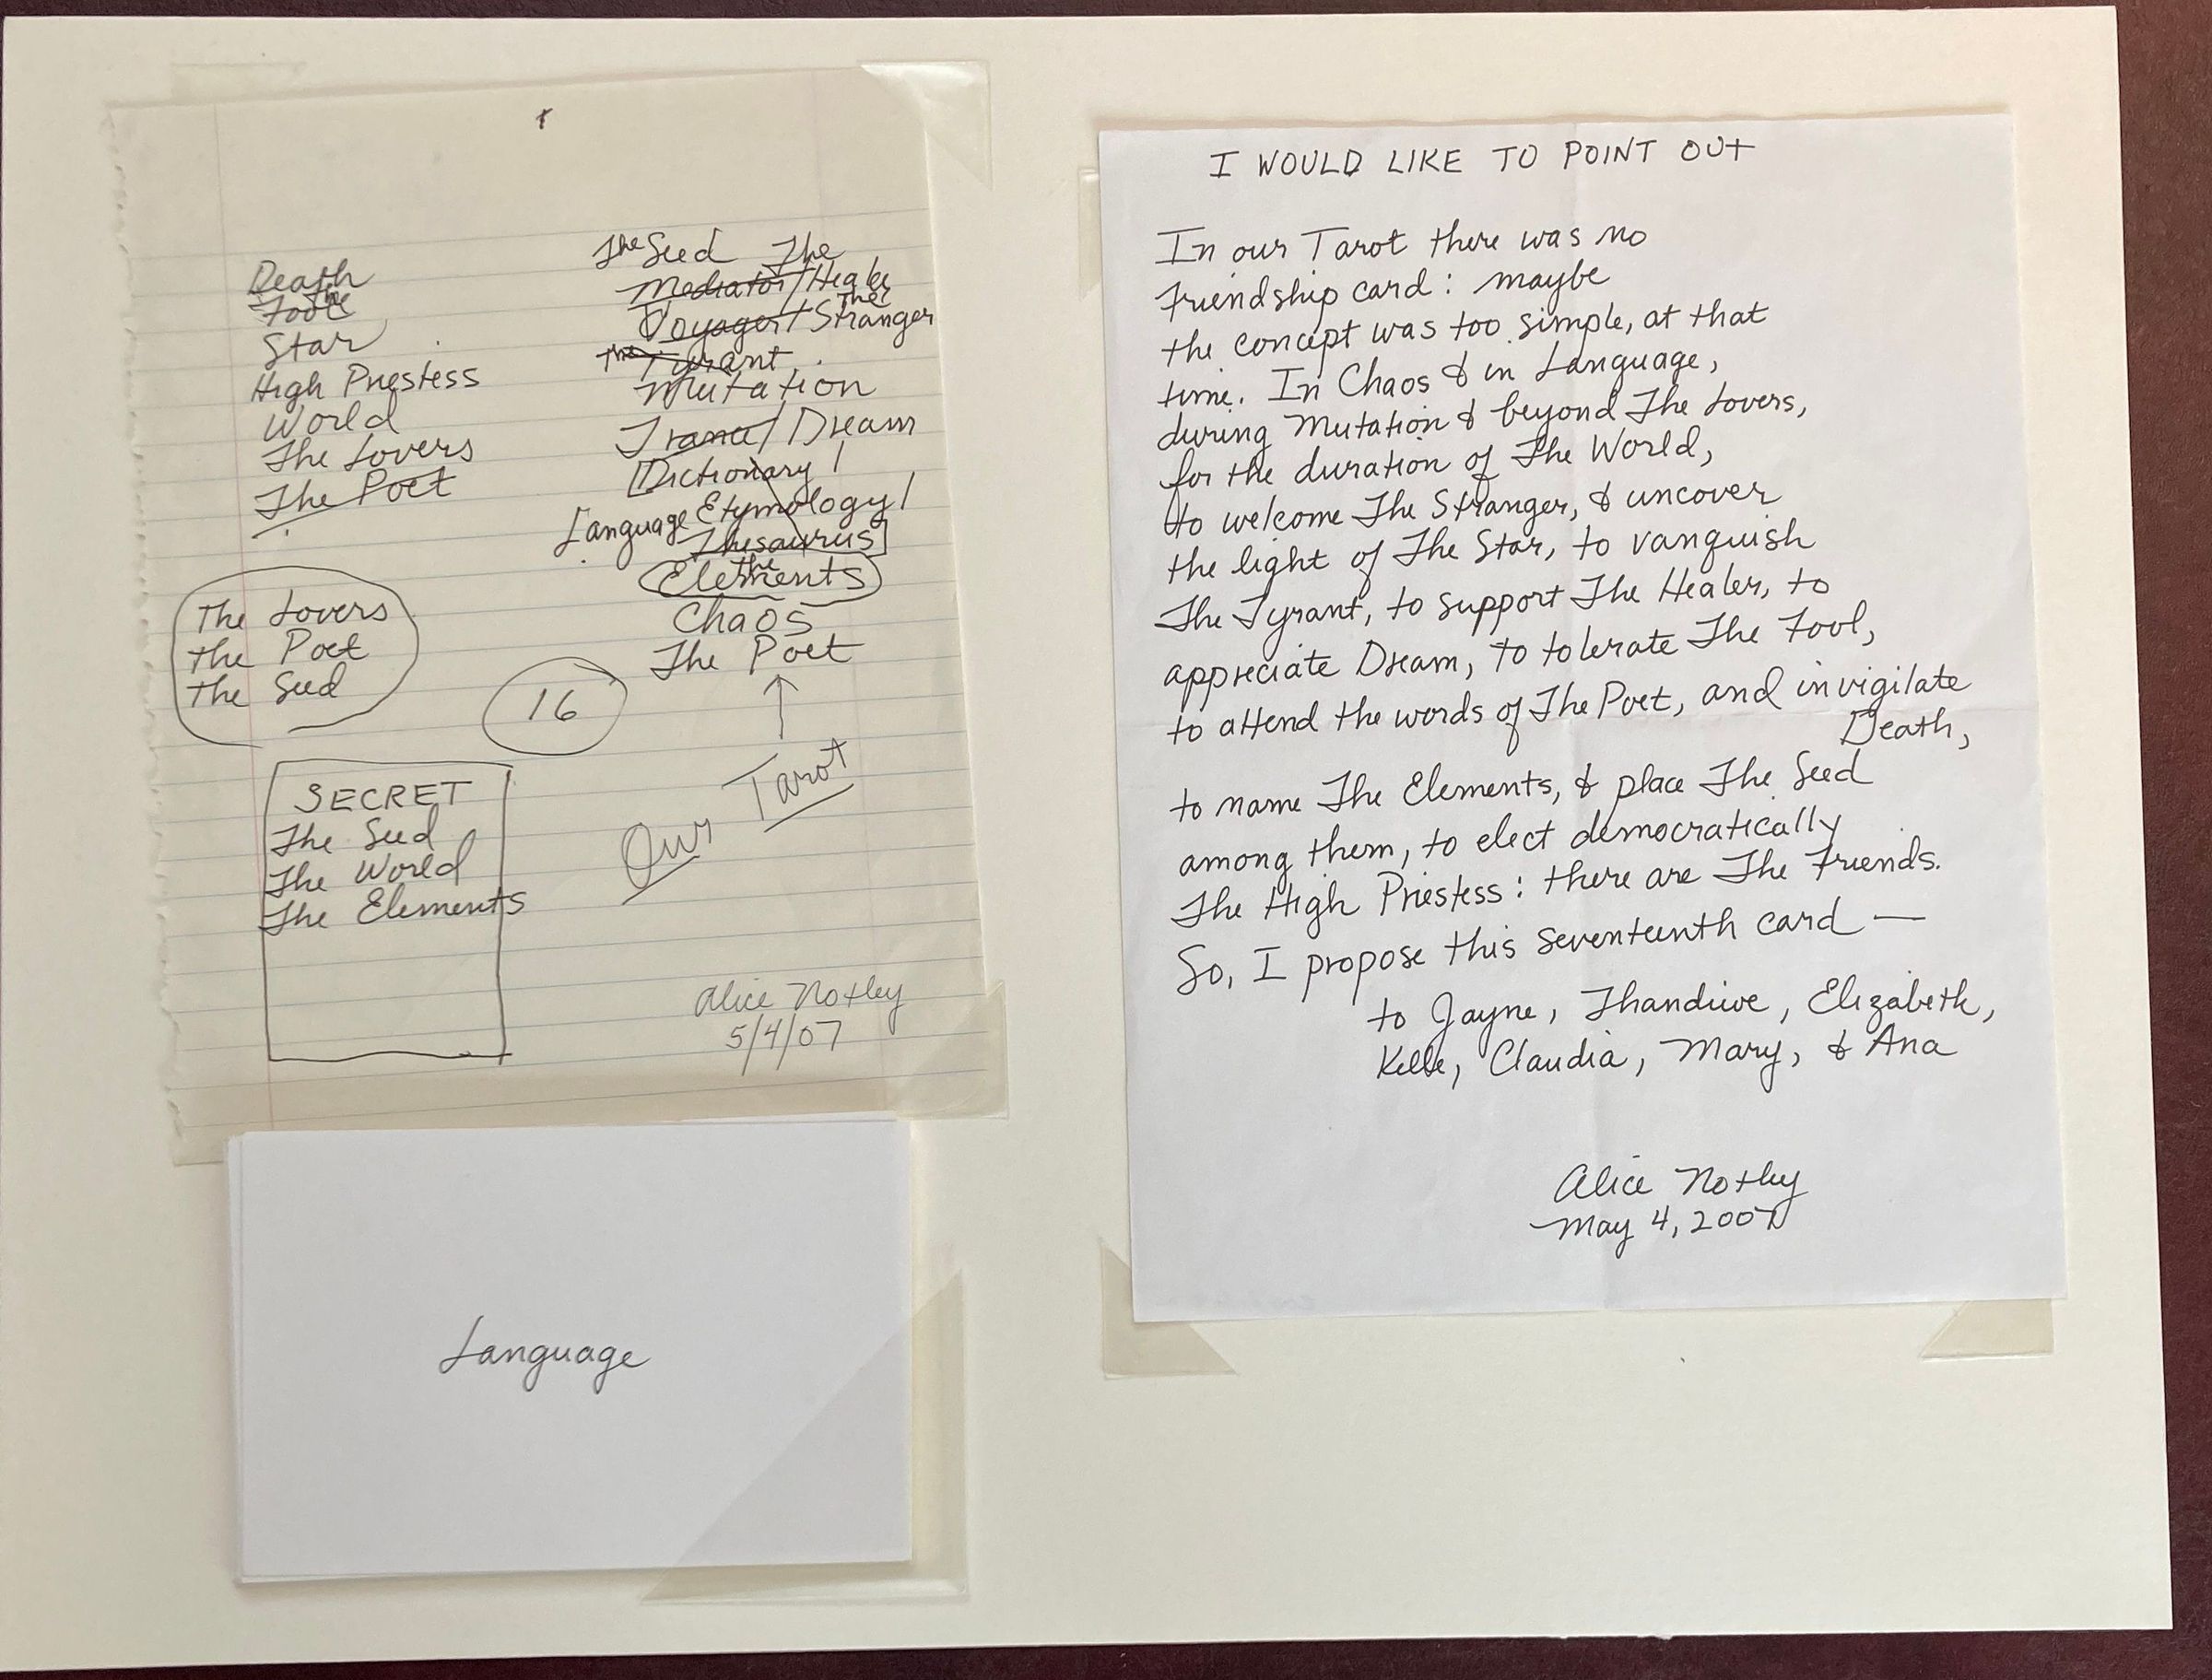 Death
The
Fool
Star
High Priestess
World
The Lovers
The Poet
The Lovers
The Poet
The Seed
16
SECRET
The Seed
The World
The Elements
The Seed The
Mediator/Healer
The
Voyager/Stranger
The Tyrant
Mutation
Trance/Dream
[Dictionary/
Language Etymology/
Thesaurus]
The
Elements
Chaos
The Poet
Our Tarot
Alice Notley
5/4/07
Language
I WOULD LIKE TO POINT OUT
In our Tarot there was no
Friendship card: maybe
the concept was too simple, at that
time. In Chaos & in Language,
during Mutation & beyond The Lovers,
for the duration of The World,
to welcome The Stranger, & uncover
the light of The Star, to vanquish
The Tyrant, to support The Healer, to
appreciate Dream, to tolerate The Fool,
to attend the words of The Poet, and invigilate
Death,
to name The Elements, & place The Seed
among them, to elect democratically
The High Priestess: there are The Friends.
So, I propose this seventeenth card —
to Jayne, Thandiwe, Elizabeth,
Kelle, Claudia, Mary, & Ana
Alice Notley
May 4, 2007